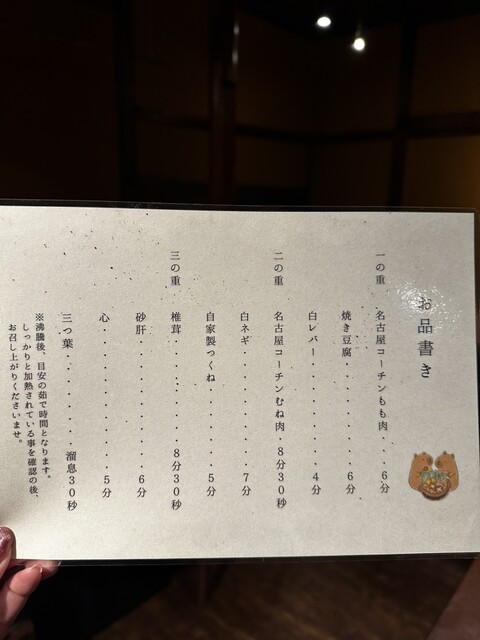 お品書き
一の重 名古屋コーチンもも肉・・・6分
焼き豆腐・・・・・・・・・6分
白レバー・・・・・・・・・4分
二の重 名古屋コーチンむね肉・8分30秒
白ネギ・・・・・・・・・・7分
自家製つくね・・・・・・・5分
三の重 椎茸・・・・・・・・8分30秒
砂肝・・・・・・・・・・・6分
心・・・・・・・・・・・・5分
三つ葉・・・・・・・・溜息30秒
※沸騰後、目安の茹で時間となります。
しっかりと加熱されている事を確認の後、
お召し上がりくださいませ。